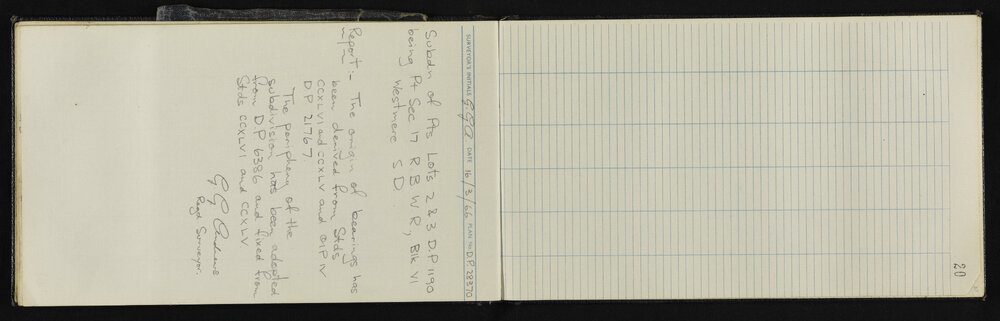 SURVEYOR'S INITIALS G.G.A DATE 16/3/66 PLAN No. D.P. 28370
Subdn of Pts Lots 2 & 3 D.P 1190
being Pt Sec 17 R B W R, Blk VI
Westmere S D
Report:- The origin of bearings has
been derived from Stds
CCXLVI and CCXLV and OIP IV
D P 21767
The periphery of the
subdivision has been adopted
from D.P 6386 and fixed from
Stds CCXLVI and CCXLV
G G Andrews
Regd Surveyor.
20